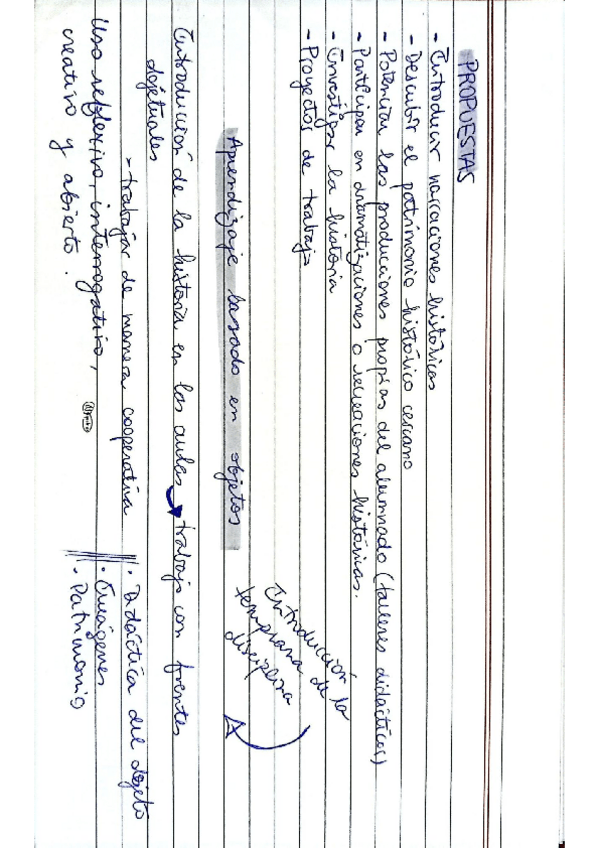 PROPUESTAS
- Introducir narraciones históricas
- Descubrir el patrimonio histórico cercano
- Potenciar las producciones propias del alumnado (talleres didácticos)
- Participar en dramatizaciones o recreaciones históricas.
- Investigar la historia
- Proyectos de trabajo
Introducción
temprana de la
disciplina
Aprendizaje basado en objetos
Introducción de la historia en las aulas → trabajo con fuentes
objetuales
- trabajar de manera cooperativa
Uso reflexivo, interrogativo,
creativo y abierto.
· Didáctica del objeto
· Imágenes
· Patrimonio